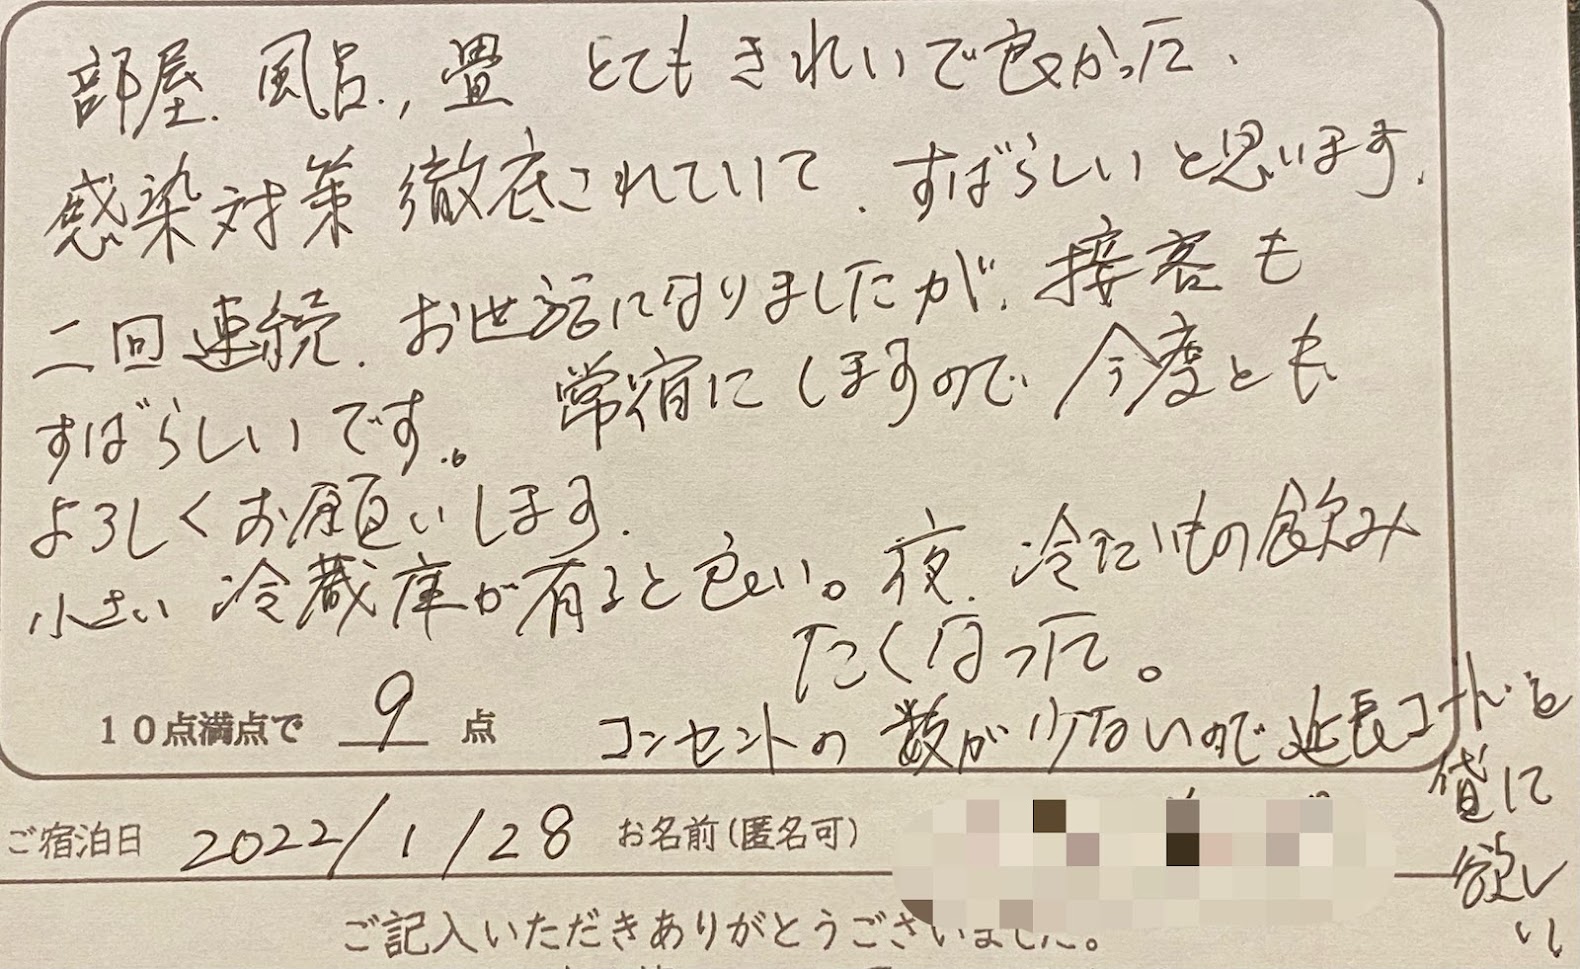 部屋、風呂、畳 とてもきれいで良かった、
感染対策 徹底されていて、すばらしいと思います、
二回連続、お世話になりましたが、接客も
すばらしいです。常宿にしますので、今度とも
よろしくお願いします、
小さい冷蔵庫が有ると良い。夜、冷たいもの飲み
たくなった。
10点満点で 9 点
コンセントの数が少ないので延長コードを
貸して
欲し
い
ご宿泊日 2022/1/28 お名前(匿名可)
ご記入いただきありがとうございました。